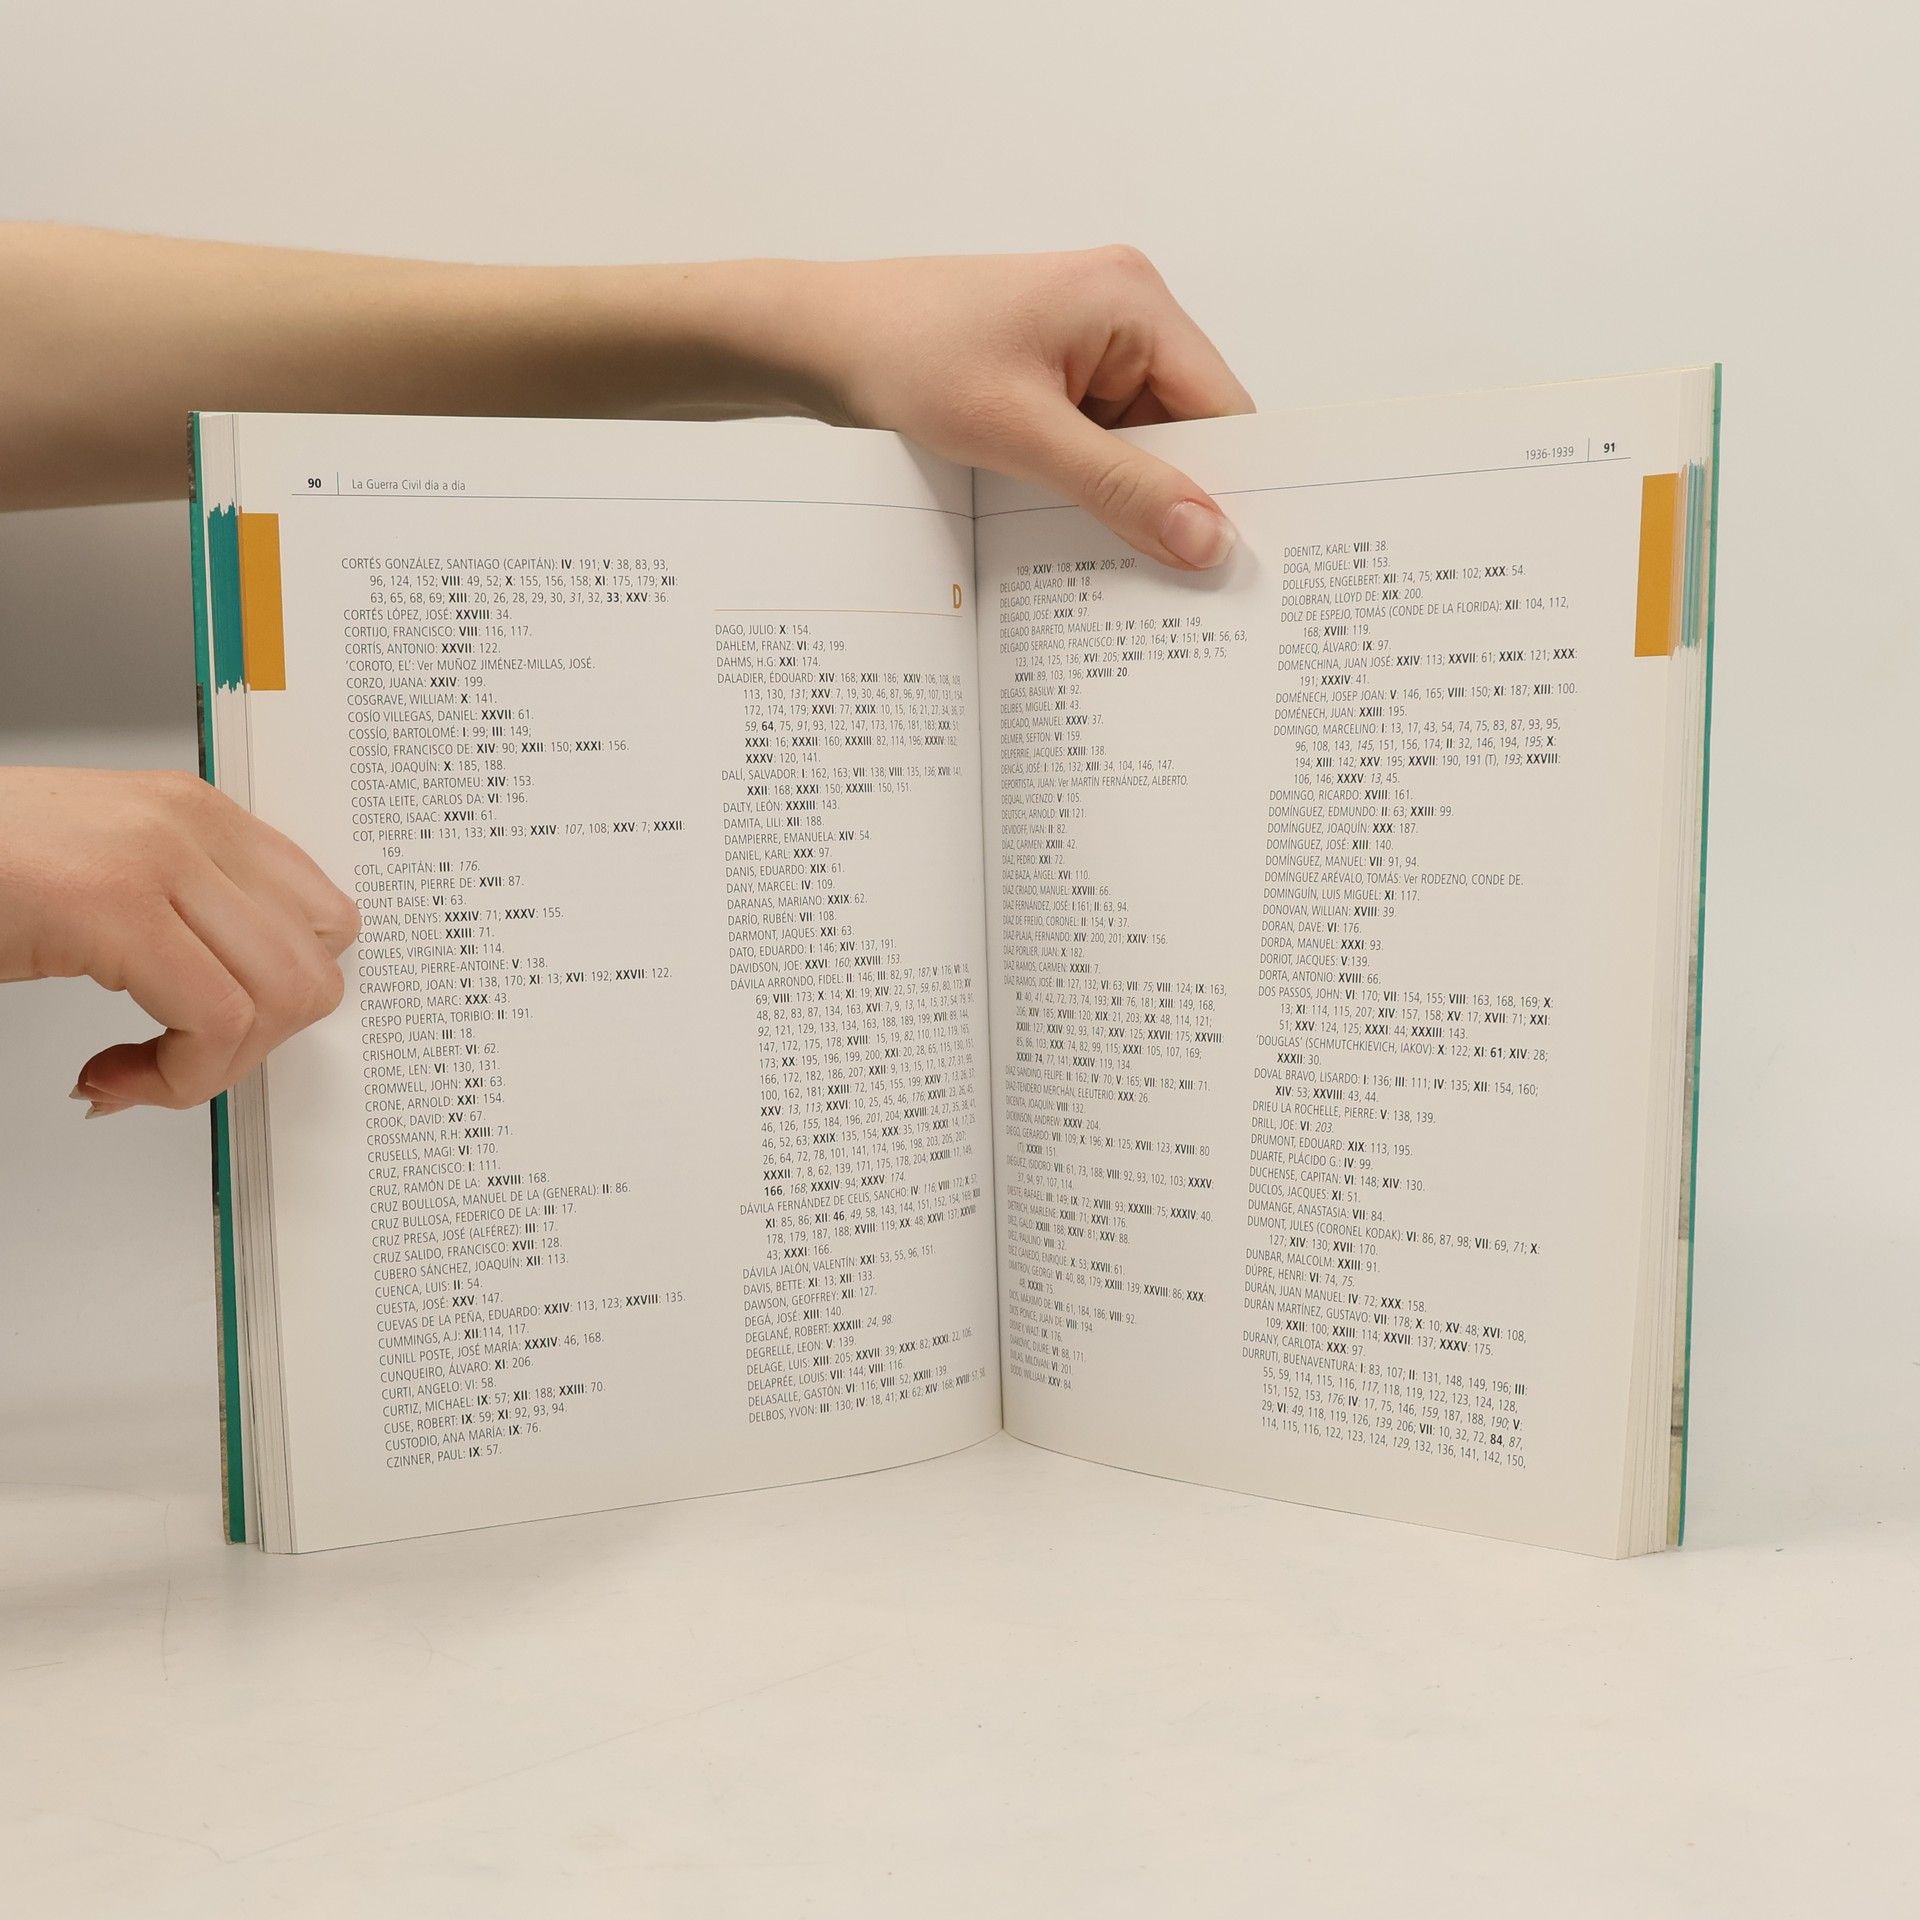 90 La Guerra Civil día a día
CORTÉS GONZÁLEZ, SANTIAGO (CAPITÁN): IV: 191; V: 38, 83, 93,
96, 124, 152; VIII: 49, 52; X: 155, 156, 158; XI: 175, 179; XII:
63, 65, 68, 69; XIII: 20, 26, 28, 29, 30, 31, 32, 33; XXV: 36.
CORTÉS LÓPEZ, JOSÉ: XXVIII: 34.
CORTIJO, FRANCISCO: VIII: 116, 117.
CORTÍS, ANTONIO: XXVII: 122.
'COROTO, EL': Ver MUÑOZ JIMÉNEZ-MILLAS, JOSÉ.
CORZO, JUANA: XXIV: 199.
COSGRAVE, WILLIAM: X: 141.
COSÍO VILLEGAS, DANIEL: XXVII: 61.
COSSÍO, BARTOLOMÉ: I: 99; III: 149;
COSSÍO, FRANCISCO DE: XIV: 90; XXII: 150; XXXI: 156.
COSTA, JOAQUÍN: X: 185, 188.
COSTA-AMIC, BARTOMEU: XIV: 153.
COSTA LEITE, CARLOS DA: VI: 196.
COSTERO, ISAAC: XXVII: 61.
COT, PIERRE: III: 131, 133; XII: 93; XXIV: 107, 108; XXV: 7; XXXII:
169.
COTL, CAPITÁN: III: 176.
COUBERTIN, PIERRE DE: XVII: 87.
COUNT BAISE: VI: 63.
COWAN, DENYS: XXXIV: 71; XXXV: 155.
COWARD, NOEL: XXIII: 71.
COWLES, VIRGINIA: XII: 114.
COUSTEAU, PIERRE-ANTOINE: V: 138.
CRAWFORD, JOAN: VI: 138, 170; XI: 13; XVI: 192; XXVII: 122.
CRAWFORD, MARC: XXX: 43.
CRESPO PUERTA, TORIBIO: II: 191.
CRESPO, JUAN: III: 18.
CRISHOLM, ALBERT: VI: 62.
CROME, LEN: VI: 130, 131.
CROMWELL, JOHN: XXI: 63.
CRONE, ARNOLD: XXI: 154.
CROOK, DAVID: XV: 67.
CROSSMANN, R.H: XXIII: 71.
CRUSELLS, MAGI: VI: 170.
CRUZ, FRANCISCO: I: 111.
CRUZ, RAMÓN DE LA: XXVIII: 168.
CRUZ BOULLOSA, MANUEL DE LA (GENERAL): II: 86.
CRUZ BULLOSA, FEDERICO DE LA: III: 17.
CRUZ PRESA, JOSÉ (ALFÉREZ): III: 17.
CRUZ SALIDO, FRANCISCO: XVII: 128.
CUBERO SÁNCHEZ, JOAQUÍN: XII: 113.
CUENCA, LUIS: II: 54.
CUESTA, JOSÉ: XXV: 147.
CUEVAS DE LA PEÑA, EDUARDO: XXIV: 113, 123; XXVIII: 135.
CUMMINGS, A.J: XII:114, 117.
CUNILL POSTE, JOSÉ MARÍA: XXXIV: 46, 168.
CUNQUEIRO, ÁLVARO: XI: 206.
CURTI, ANGELO: VI: 58.
CURTIZ, MICHAEL: IX: 57; XII: 188; XXIII: 70.
CUSE, ROBERT: IX: 59; XI: 92, 93, 94.
CUSTODIO, ANA MARÍA: IX: 76.
CZINNER, PAUL: IX: 57.
D
DAGO, JULIO: X: 154.
DAHLEM, FRANZ: VI: 43, 199.
DAHMS, H.G: XXI: 174.
DALADIER, ÉDOUARD: XIV: 168; XXII: 186; XXIV: 106, 108, 109,
113, 130, 131; XXV: 7, 19, 30, 46, 87, 96, 97, 107, 131, 154,
172, 174, 179; XXVI: 77; XXIX: 10, 15, 16, 21, 27, 34, 36, 37,
59, 64, 75, 91, 93, 122, 147, 173, 176, 181, 183; XXX: 51;
XXXI: 16; XXXII: 160; XXXIII: 82, 114, 196; XXXIV: 182;
XXXV: 120, 141.
DALÍ, SALVADOR: I: 162, 163; VII: 138; VIII: 135, 136; XVII: 141;
XXII: 168; XXXI: 150; XXXIII: 150, 151.
DALTY, LEÓN: XXXIII: 143.
DAMITA, LILI: XII: 188.
DAMPIERRE, EMANUELA: XIV: 54.
DANIEL, KARL: XXX: 97.
DANIS, EDUARDO: XIX: 61.
DANY, MARCEL: IV: 109.
DARANAS, MARIANO: XXIX: 62.
DARÍO, RUBÉN: VII: 108.
DARMONT, JAQUES: XXI: 63.
DATO, EDUARDO: I: 146; XIV: 137, 191.
DAVIDSON, JOE: XXVI: 160; XXVIII: 153.
DÁVILA ARRONDO, FIDEL: II: 146; III: 82, 97, 187; V: 176; VI: 18,
69; VIII: 173; X: 14; XI: 19; XIV: 22, 57, 59, 67, 80, 173; XV:
48, 82, 83, 87, 134, 163; XVI: 7, 9, 13, 14, 15, 37, 54, 79, 91,
92, 121, 129, 133, 134, 163, 188, 189, 199; XVII: 89, 144,
147, 172, 175, 178; XVIII: 15, 19, 82, 110, 112, 119, 165,
173; XX: 195, 196, 199, 200; XXI: 20, 28, 65, 115, 130, 151,
166, 172, 182, 186, 207; XXII: 9, 13, 15, 17, 18, 27, 31, 99,
100, 162, 181; XXIII: 72, 145, 155, 199; XXIV: 7, 13, 26, 37;
XXV: 13, 113; XXVI: 10, 25, 45, 46, 176; XXVII: 23, 26, 45,
46, 126, 155, 184, 196, 201, 204; XXVIII: 24, 27, 35, 38, 41,
46, 52, 63; XXIX: 135, 154; XXX: 35, 179; XXXI: 14, 17, 25,
26, 64, 72, 78, 101, 141, 174, 196, 198, 203, 205, 207;
XXXII: 7, 8, 62, 139, 171, 175, 178, 204; XXXIII: 17, 149,
166, 168; XXXIV: 94; XXXV: 174.
DÁVILA FERNÁNDEZ DE CELIS, SANCHO: IV: 116; VIII: 172; X: 57;
XI: 85, 86; XII: 46, 49, 58, 143, 144, 151, 152, 154, 169; XIII:
178, 179, 187, 188; XVIII: 119; XX: 48; XXVI: 137; XXVIII:
43; XXXI: 166.
DÁVILA JALÓN, VALENTÍN: XXI: 53, 55, 96, 151.
DAVIS, BETTE: XI: 13; XII: 133.
DAWSON, GEOFFREY: XII: 127.
DEGÁ, JOSÉ: XIII: 140.
DEGLANÉ, ROBERT: XXXIII: 24, 98.
DEGRELLE, LEON: V: 139.
DELAGE, LUIS: XIII: 205; XXVII: 39; XXX: 82; XXXI: 22, 106.
DELAPRÉE, LOUIS: VII: 144; VIII: 116.
DELASALLE, GASTÓN: VI: 116; VIII: 52; XXIII: 139.
DELBOS, YVON: III: 130; IV: 18, 41; XI: 62; XIV: 168; XVIII: 57, 58,
1936-1939 91
109; XXIV: 108; XXIX: 205, 207.
DELGADO, ÁLVARO: III: 18.
DELGADO, FERNANDO: IX: 64.
DELGADO, JOSÉ: XXIX: 97.
DELGADO BARRETO, MANUEL: II: 9; IV: 160; XXII: 149.
DELGADO SERRANO, FRANCISCO: IV: 120, 164; V: 151; VII: 56, 63,
123, 124, 125, 136; XVI: 205; XXIII: 119; XXVI: 8, 9, 75;
XXVII: 89, 103, 196; XXVIII: 20.
DELGASS, BASILW: XI: 92.
DELIBES, MIGUEL: XII: 43.
DELICADO, MANUEL: XXXV: 37.
DELMER, SEFTON: VI: 159.
DELPERRIE, JACQUES: XXIII: 138.
DENCÁS, JOSÉ: I: 126, 132; XIII: 34, 104, 146, 147.
DEPORTISTA, JUAN: Ver MARTÍN FERNÁNDEZ, ALBERTO.
DEQUAL, VICENZO: V: 105.
DEUTSCH, ARNOLD: VII:121.
DEVIDOFF, IVAN: II: 82.
DÍAZ, CARMEN: XXIII: 42.
DÍAZ, PEDRO: XXI: 72.
DÍAZ BAZA, ÁNGEL: XVI: 110.
DÍAZ CRIADO, MANUEL: XXVIII: 66.
DÍAZ FERNÁNDEZ, JOSÉ: I:161; II: 63, 94.
DÍAZ DE FREIJO, CORONEL: II: 154; V: 37.
DÍAZ-PLAJA, FERNANDO: XIV: 200, 201; XXIV: 156.
DÍAZ PORLIER, JUAN: X: 182.
DÍAZ RAMOS, CARMEN: XXXII: 7.
DÍAZ RAMOS, JOSÉ: III: 127, 132; VI: 63; VII: 75; VIII: 124; IX: 163,
XI: 40, 41, 42, 72, 73, 74, 193; XII: 76, 181; XIII: 149, 168,
206; XIV: 185; XVIII: 120; XIX: 21, 203; XX: 48, 114, 121;
XXIII: 127; XXIV: 92, 93, 147; XXV: 125; XXVII: 175; XXVIII:
85, 86, 103; XXX: 74, 82, 99, 115; XXXI: 105, 107, 169;
XXXII: 74, 77, 141; XXXIV: 119, 134.
DÍAZ SANDINO, FELIPE: II: 162; IV: 70; V: 165; VII: 182; XIII: 71.
DÍAZ-TENDERO MERCHÁN, ELEUTERIO: XXX: 26.
DICENTA, JOAQUÍN: VIII: 132.
DICKINSON, ANDREW: XXXV: 204.
DIEGO, GERARDO: VII: 109; X: 196; XI: 125; XVII: 123; XVIII: 80
(T); XXXII: 151.
DIÉGUEZ, ISIDORO: VII: 61, 73, 188; VIII: 92, 93, 102, 103; XXXV:
37, 94, 97, 107, 114.
DIESTE, RAFAEL: III: 149; IX: 72; XVIII: 93; XXXIII: 75; XXXIV: 40.
DIETRICH, MARLENE: XXIII: 71; XXVI: 176.
DIEZ, GALO: XXIII: 188; XXIV: 81; XXV: 88.
DIEZ, PAULINO: VIII: 32.
DIEZ CANEDO, ENRIQUE: X: 53; XXVII: 61.
DIMITROV, GEORGI: VI: 40, 88, 179; XXIII: 139; XXVIII: 86; XXX:
48; XXXII: 75.
DIOS, MÁXIMO DE: VII: 61, 184, 186; VIII: 92.
DIOS PONCE, JUAN DE: VIII: 194.
DISNEY, WALT: IX: 176.
DJAKOVIC, DJURE: VI: 88, 171.
DJILAS, MILOVAN: VI: 201.
DODD, WILLIAM: XXV: 84.
DOENITZ, KARL: VIII: 38.
DOGA, MIGUEL: VII: 153.
DOLLFUSS, ENGELBERT: XII: 74, 75; XXII: 102; XXX: 54.
DOLOBRAN, LLOYD DE: XIX: 200.
DOLZ DE ESPEJO, TOMÁS (CONDE DE LA FLORIDA): XII: 104, 112,
168; XVIII: 119.
DOMECQ, ÁLVARO: IX: 97.
DOMENCHINA, JUAN JOSÉ: XXIV: 113; XXVII: 61; XXIX: 121; XXX:
191; XXXIV: 41.
DOMÉNECH, JOSEP JOAN: V: 146, 165; VIII: 150; XI: 187; XIII: 100.
DOMÉNECH, JUAN: XXIII: 195.
DOMINGO, MARCELINO: I: 13, 17, 43, 54, 74, 75, 83, 87, 93, 95,
96, 108, 143, 145, 151, 156, 174; II: 32, 146, 194, 195; X:
194; XIII: 142; XXV: 195; XXVII: 190, 191 (T), 193; XXVIII:
106, 146; XXXV: 13, 45.
DOMINGO, RICARDO: XVIII: 161.
DOMÍNGUEZ, EDMUNDO: II: 63; XXIII: 99.
DOMÍNGUEZ, JOAQUÍN: XXX: 187.
DOMÍNGUEZ, JOSÉ: XIII: 140.
DOMÍNGUEZ, MANUEL: VII: 91, 94.
DOMÍNGUEZ ARÉVALO, TOMÁS: Ver RODEZNO, CONDE DE.
DOMINGUÍN, LUIS MIGUEL: XI: 117.
DONOVAN, WILLIAN: XVIII: 39.
DORAN, DAVE: VI: 176.
DORDA, MANUEL: XXXI: 93.
DORIOT, JACQUES: V:139.
DORTA, ANTONIO: XVIII: 66.
DOS PASSOS, JOHN: VI: 170; VII: 154, 155; VIII: 163, 168, 169; X:
13; XI: 114, 115, 207; XIV: 157, 158; XV: 17; XVII: 71; XXI:
51; XXV: 124, 125; XXXI: 44; XXXIII: 143.
'DOUGLAS' (SCHMUTCHKIEVICH, IAKOV): X: 122; XI: 61; XIV: 28;
XXXII: 30.
DOVAL BRAVO, LISARDO: I: 136; III: 111; IV: 135; XII: 154, 160;
XIV: 53; XXVIII: 43, 44.
DRIEU LA ROCHELLE, PIERRE: V: 138, 139.
DRILL, JOE: VI: 203.
DRUMONT, EDOUARD: XIX: 113, 195.
DUARTE, PLÁCIDO G.: IV: 99.
DUCHENSE, CAPITAN: VI: 148; XIV: 130.
DUCLOS, JACQUES: XI: 51.
DUMANGE, ANASTASIA: VII: 84.
DUMONT, JULES (CORONEL KODAK): VI: 86, 87, 98; VII: 69, 71; X:
127; XIV: 130; XVII: 170.
DUNBAR, MALCOLM: XXIII: 91.
DÚPRE, HENRI: VI: 74, 75.
DURÁN, JUAN MANUEL: IV: 72; XXX: 158.
DURÁN MARTÍNEZ, GUSTAVO: VII: 178; X: 10; XV: 48; XVI: 108,
109; XXII: 100; XXIII: 114; XXVII: 137; XXXV: 175.
DURANY, CARLOTA: XXX: 97.
DURRUTI, BUENAVENTURA: I: 83, 107; II: 131, 148, 149, 196; III:
55, 59, 114, 115, 116, 117, 118, 119, 122, 123, 124, 128,
151, 152, 153, 176; IV: 17, 75, 146, 159, 187, 188, 190; V:
29; VI: 49, 118, 119, 126, 139, 206; VII: 10, 32, 72, 84, 87,
114, 115, 116, 122, 123, 124, 129, 132, 136, 141, 142, 150,